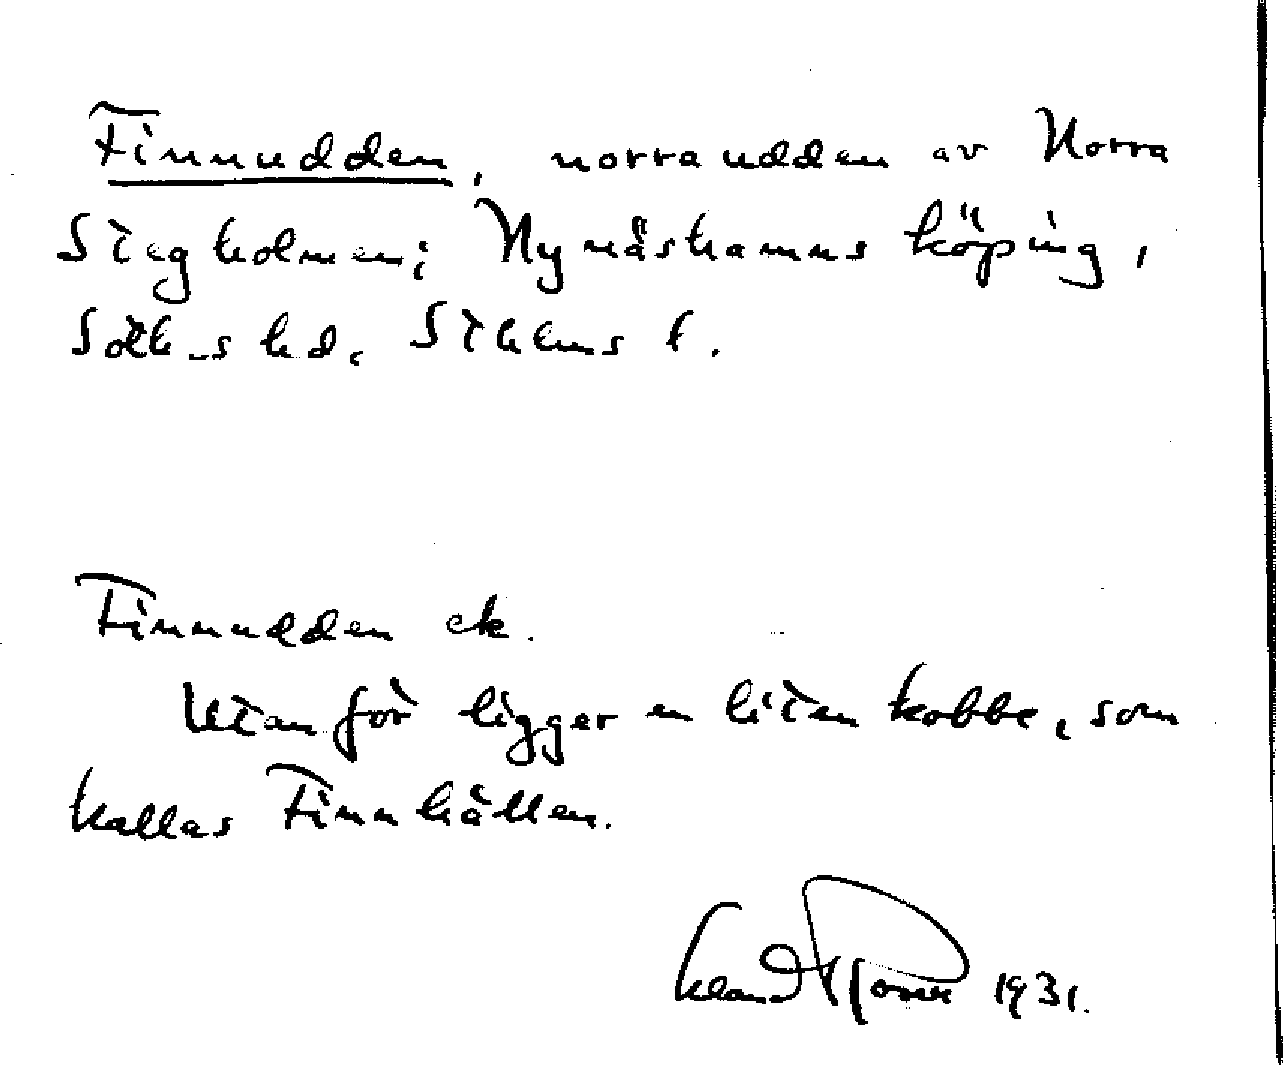 Finnudden, norra udden av Norra
Stegholmen; Nynäshamns köping,
Soth-s hd. Sthlms l.
Finnudden ek.
Utanför ligger en liten kobbe, som
kallas Finnhällen.
1931.